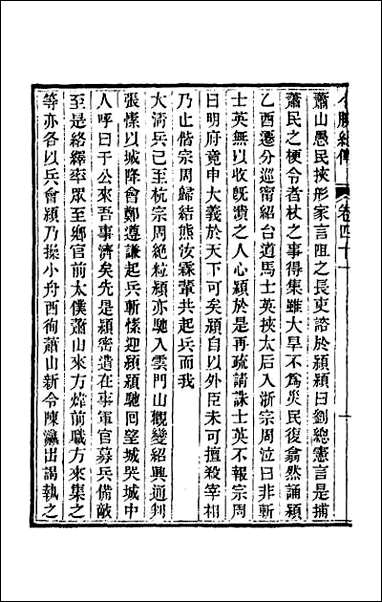 蕭山愚民挾形家言阻之長吏諮於潁潁曰劉總憲言是捕
蕭民之梗令者杖之事得集雖大旱不為災民復翕然誦潁
乙酉遷分巡寧紹台道馬士英挾太后入浙宗周泣曰非斬
士英無以收旣潰之人心潁於是再疏請誅士英不報宗周
曰明府竟申大義於天下可矣潁自以外臣未可擅殺宰相
乃止偕宗周歸結熊汝霖輩共起兵而我
大淸兵已至杭宗周絶粒潁亦馳入雲門山觀變紹興通判
張愫以城降會鄭遵謙起兵斬愫迎潁潁馳回望城哭城中
人呼曰于公來吾事濟矣先是潁密遣在事軍官募兵備敵
至是絡繹率眾至鄉官前太僕蕭山來方煒前職方來集之
等亦各以兵會潁乃操小舟西徇蕭山新令陳瀛出謁執之
卷四十一